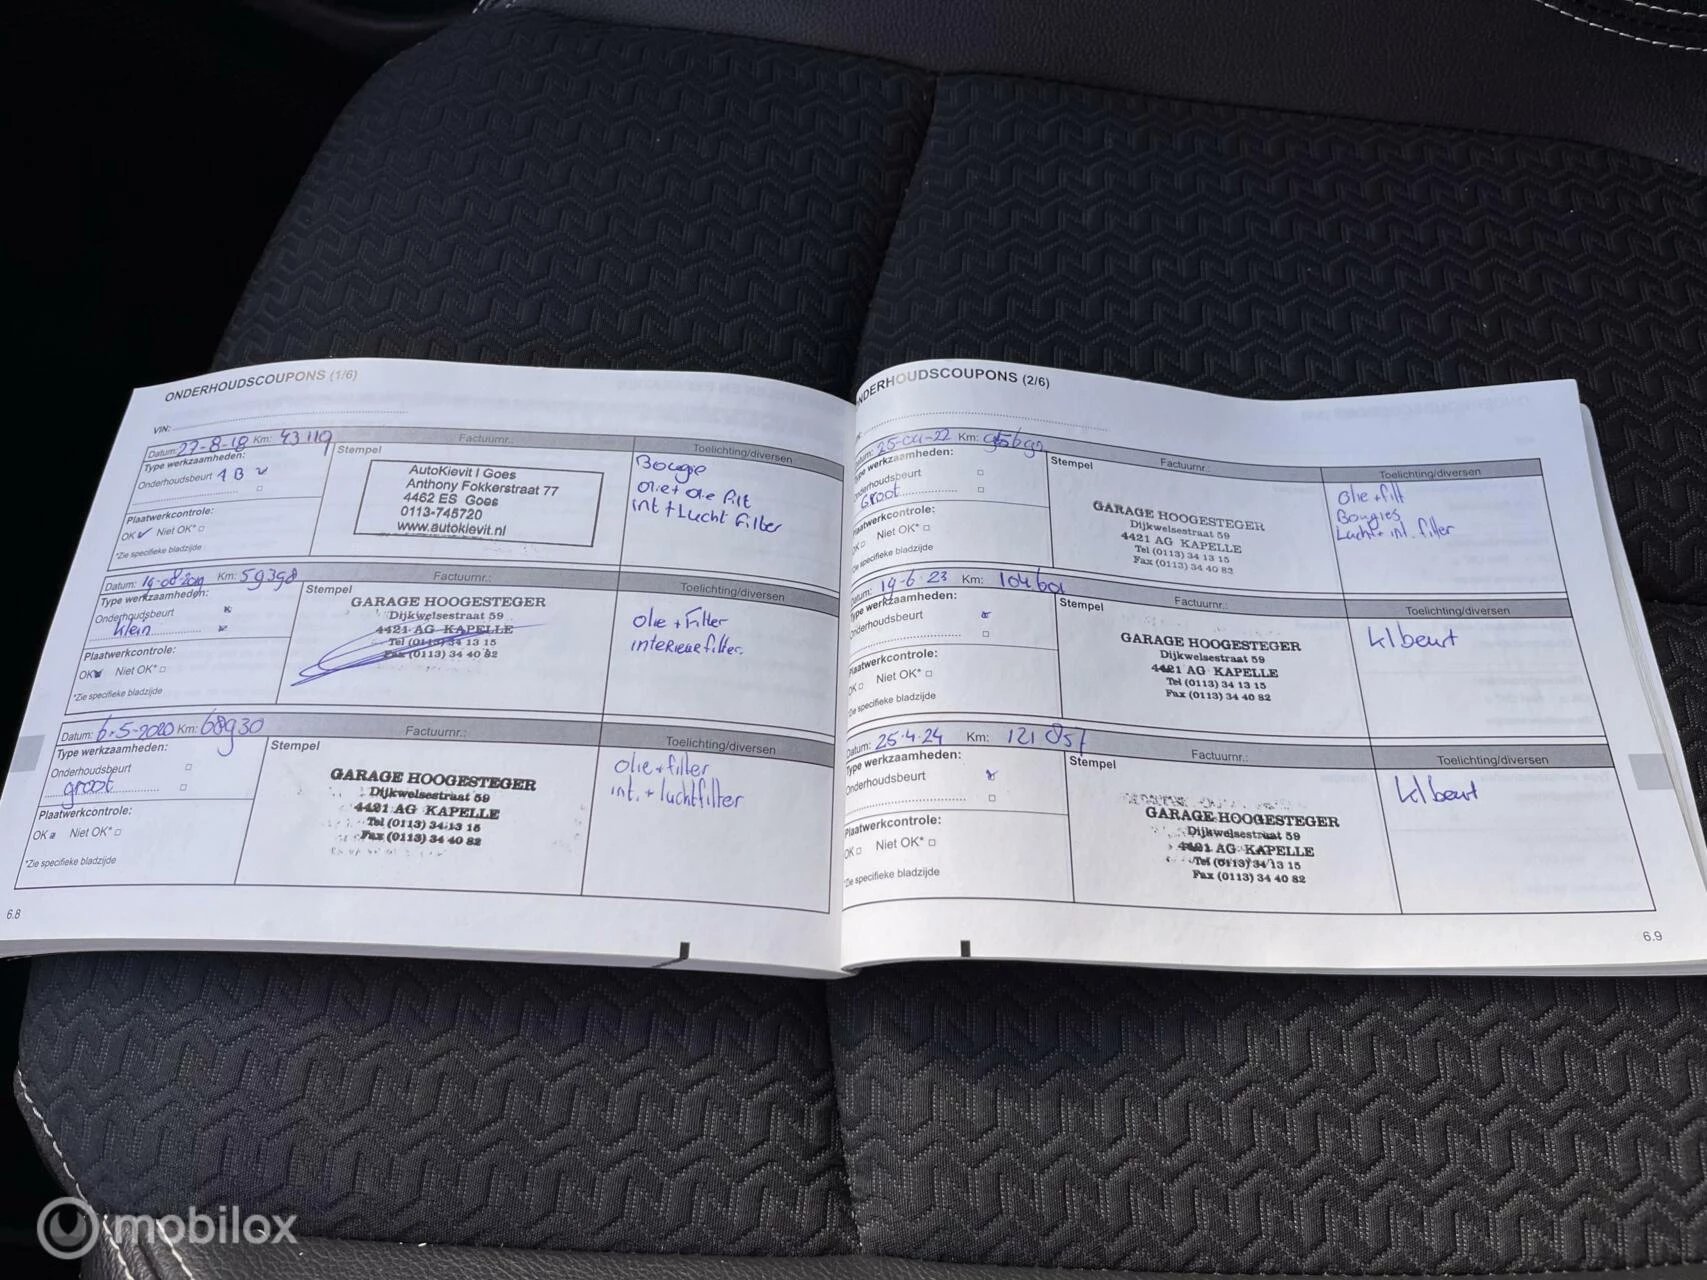 ONDERHOUDSCOUPONS (1/6)
VIN:
Datum: 27-8-18 Km: 43119 Factuurnr.:
Type werkzaamheden:
Onderhoudsbeurt
Plaatwerkcontrole:
OK Niet OK*
*Zie specifieke bladzijde
Stempel
AutoKievit I Goes
Anthony Fokkerstraat 77
4462 ES Goes
0113-745720
www.autokievit.nl
Toelichting/diversen
Bougie
olie + olie filt
int + Lucht filter
Datum: 14-08-2019 Km: 59398 Factuurnr.:
Type werkzaamheden:
Onderhoudsbeurt
klein
Plaatwerkcontrole:
OK Niet OK*
*Zie specifieke bladzijde
Stempel
GARAGE HOOGESTEGER
Dijkwelsestraat 59
4421 AG KAPELLE
Tel (0113) 34 13 15
Fax (0113) 34 40 82
Toelichting/diversen
olie + Filter
interieurfilter.
Datum: 6-5-2020 Km: 68930 Factuurnr.:
Type werkzaamheden:
Onderhoudsbeurt
groot
Plaatwerkcontrole:
OK Niet OK*
*Zie specifieke bladzijde
Stempel
GARAGE HOOGESTEGER
Dijkwelsestraat 59
4421 AG KAPELLE
Tel (0113) 34 13 15
Fax (0113) 34 40 82
Toelichting/diversen
olie + filter
int. + luchtfilter
6.8
ONDERHOUDSCOUPONS (2/6)
Datum: 25-04-22 Km: Factuurnr.:
Type werkzaamheden:
Onderhoudsbeurt
Groot
Plaatwerkcontrole:
OK Niet OK*
*Zie specifieke bladzijde
Stempel
GARAGE HOOGESTEGER
Dijkwelsestraat 59
4421 AG KAPELLE
Tel (0113) 34 13 15
Fax (0113) 34 40 82
Toelichting/diversen
Olie + filt
Bougies
Lucht + int. filter
Datum: 19-6-23 Km: 104601 Factuurnr.:
Type werkzaamheden:
Onderhoudsbeurt
Plaatwerkcontrole:
OK Niet OK*
*Zie specifieke bladzijde
Stempel
GARAGE HOOGESTEGER
Dijkwelsestraat 59
4421 AG KAPELLE
Tel (0113) 34 13 15
Fax (0113) 34 40 82
Toelichting/diversen
kl beurt
Datum: 25.4.24 Km: Factuurnr.:
Type werkzaamheden:
Onderhoudsbeurt
Plaatwerkcontrole:
OK Niet OK*
*Zie specifieke bladzijde
Stempel
GARAGE HOOGESTEGER
Dijkwelsestraat 59
4421 AG KAPELLE
Tel (0113) 34 13 15
Fax (0113) 34 40 82
Toelichting/diversen
kl beurt
6.9
mobilox